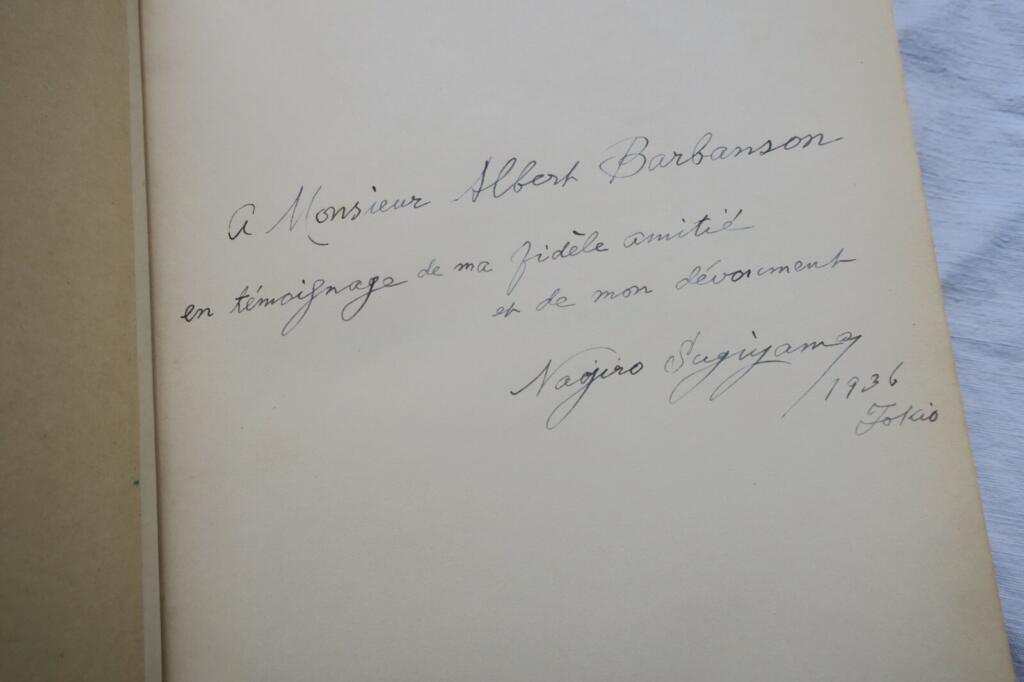 A Monsieur Albert Barbanson
en témoignage de ma fidèle amitié
et de mon dévoument
Nagiro Sugiyama
1936
Tokio